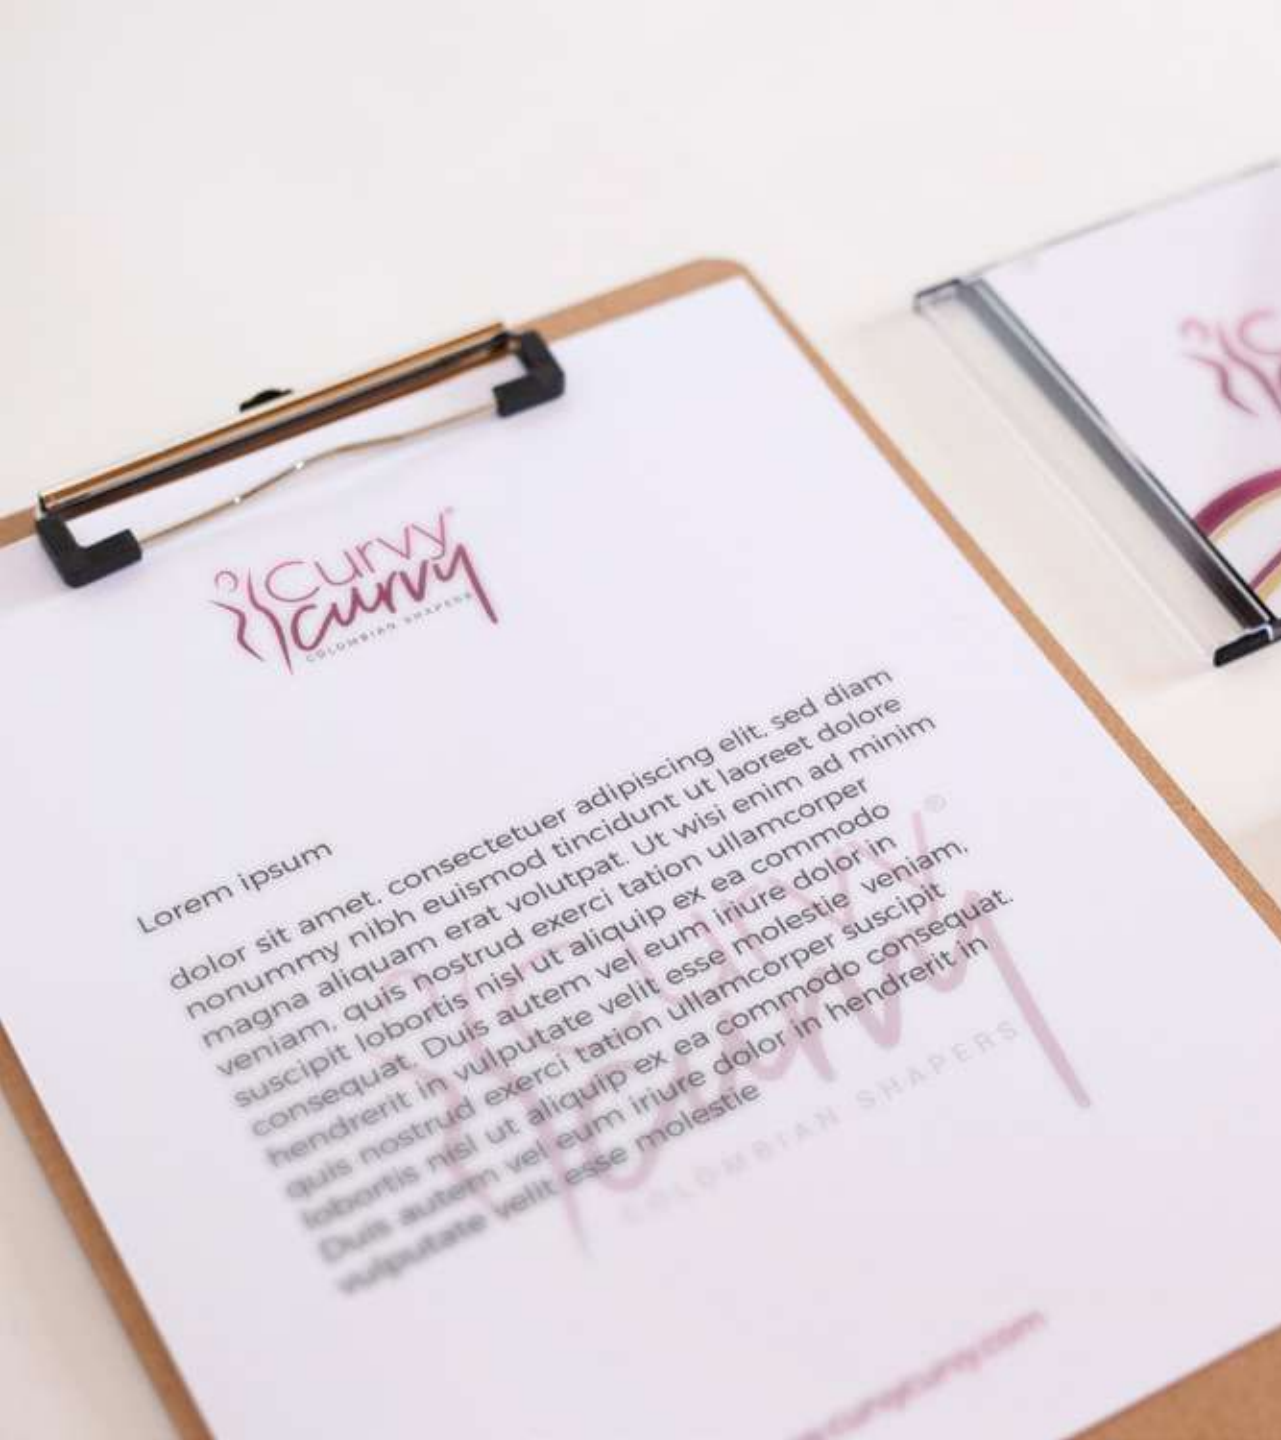 Curvy®
curvy
COLOMBIAN SHAPERS
Lorem ipsum
dolor sit amet, consectetuer adipiscing elit, sed diam
nonummy nibh euismod tincidunt ut laoreet dolore
magna aliquam erat volutpat. Ut wisi enim ad minim
veniam, quis nostrud exerci tation ullamcorper
suscipit lobortis nisl ut aliquip ex ea commodo
consequat. Duis autem vel eum iriure dolor in
hendrerit in vulputate velit esse molestie veniam,
quis nostrud exerci tation ullamcorper suscipit
lobortis nisl ut aliquip ex ea commodo consequat.
Duis autem vel eum iriure dolor in hendrerit in
vulputate velit esse molestie
Curvy®
curvy
COLOMBIAN SHAPERS